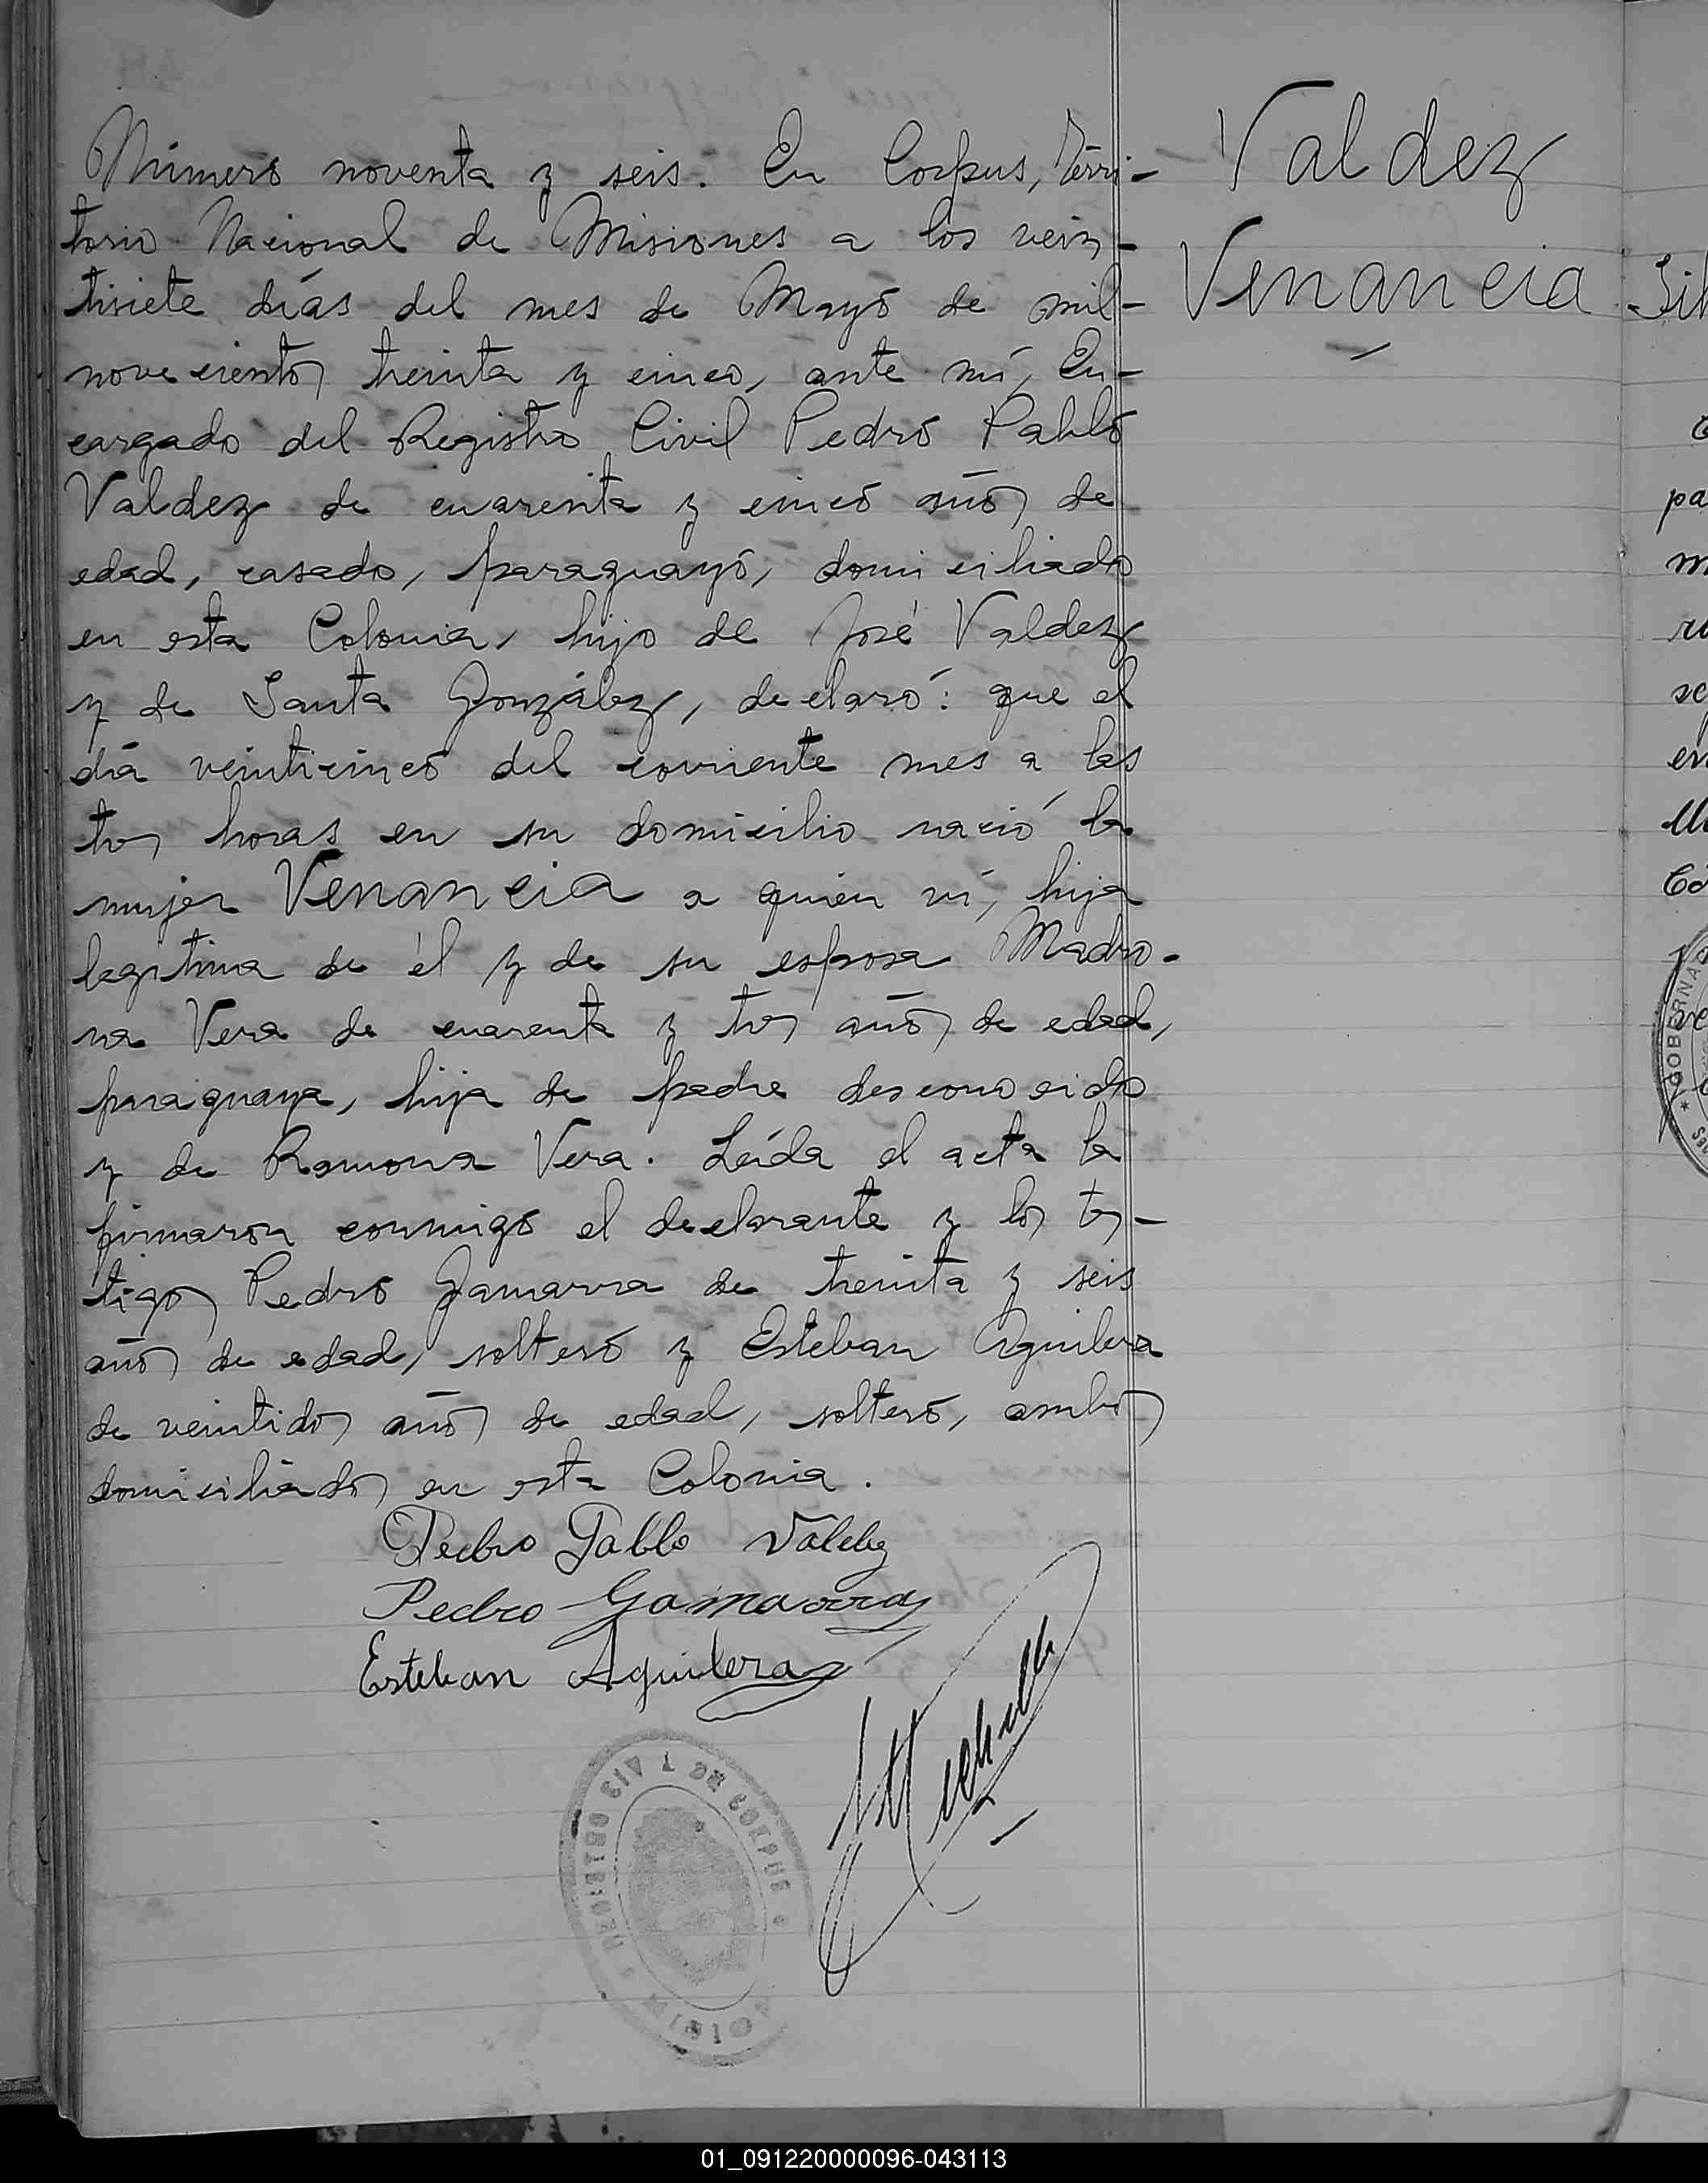 Número noventa y seis. En Corpus, Terri-
torio Nacional de Misiones a los vein-
tisiete días del mes de Mayo de mil-
novecientos treinta y cinco, ante mí, En-
cargado del Registro Civil Pedro Pablo
Valdez de cuarenta y cinco años de
edad, casado, paraguayo, domiciliado
en esta Colonia, hijo de José Valdez
y de Santa González, declaró: que el
día veinticinco del corriente mes a las
tres horas en su domicilio nació la
mujer Venancia a quien ví, hija
legítima de él y de su esposa Madro-
na Vera de cuarenta y tres años de edad,
paraguaya, hija de padre desconocido
y de Ramona Vera. Leída el acta la
firmaron conmigo el declarante y los tes-
tigos Pedro Gamarra de treinta y seis
años de edad, soltero y Esteban Aguilera
de veintidos años de edad, soltero, ambos
domiciliados en esta Colonia.
Pedro Pablo Valdez
Pedro Gamarra
Esteban Aguilera
REGISTRO CIVIL DE CORPUS
Valdez
Venancia
GOBERNA
01_091220000096-043113